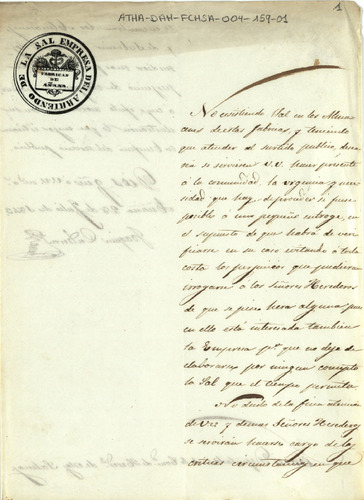 ATHA-DAH-FCHSA-004-159-01
1
DE LA SAL EMPRESA DEL ARRIENDO
FABRICAS DE AÑANA.
No existiendo Sal en los Alma
cenes de estas fabricas, y teniendo
que atender al surtido publico, desea
ria se sirviesen V.V. hacer presente
á la comunidad la urgencia y nece
sidad que hay, de proceder si fuese
posible á una pequeña entroge, en
el supuesto de que habrá de veri
ficarse en su caso evitando á toda
costa los perjuicios que pudieran
irrogarse á los Señores Herederos
de que se pierda alguna pues
en ello está interesada tambien
la Empresa pª que no deje de
elaborarse por ningun concepto
la Sal que el tiempo permita
No dudo de la fina atencion
de Vds y demas Señores Herederos
se serviran hacerse cargo de las
criticas circunstancias en que